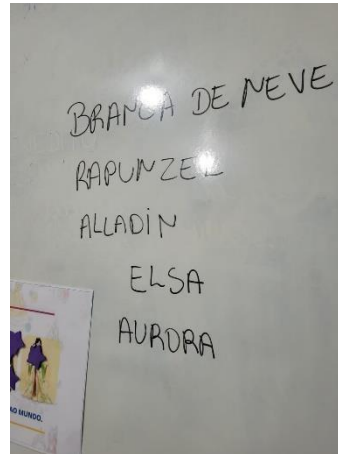 BRANCA DE NEVE
RAPUNZEL
ALLADIN
ELSA
AURORA
AO MUNDO.